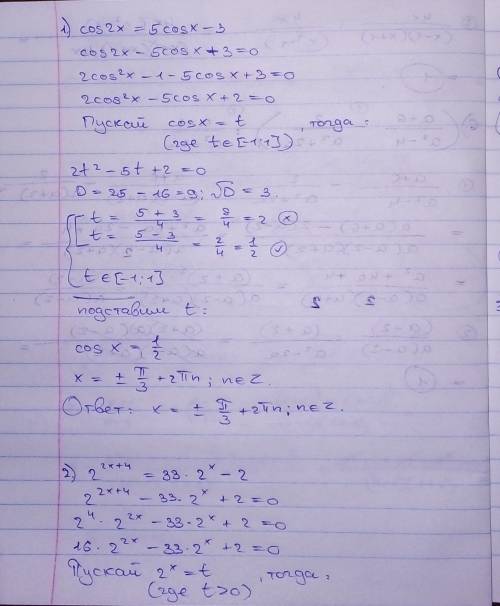 1) cos2x = 5cosx - 3
cos2x - 5cosx + 3 = 0
2cos²x - 1 - 5cosx + 3 = 0
2cos²x - 5cosx + 2 = 0
Пускай cosx = t , тогда:
(где t∈[-1;1])
2t² - 5t + 2 = 0
D = 25 - 16 = 9; √D = 3.
t = (5+3)/4 = 8/4 = 2 ⊗
t = (5-3)/4 = 2/4 = 1/2 ✓
t∈[-1;1]
подставим t:
cos x = 1/2
x = ± π/3 + 2πn; n∈Z.
Ответ: x = ± π/3 + 2πn; n∈Z.
2) 2^(2x+4) = 33·2^x - 2
2^(2x+4) - 33·2^x + 2 = 0
2^4 · 2^(2x) - 33·2^x + 2 = 0
16·2^(2x) - 33·2^x + 2 = 0
Пускай 2^x = t , тогда:
(где t>0)